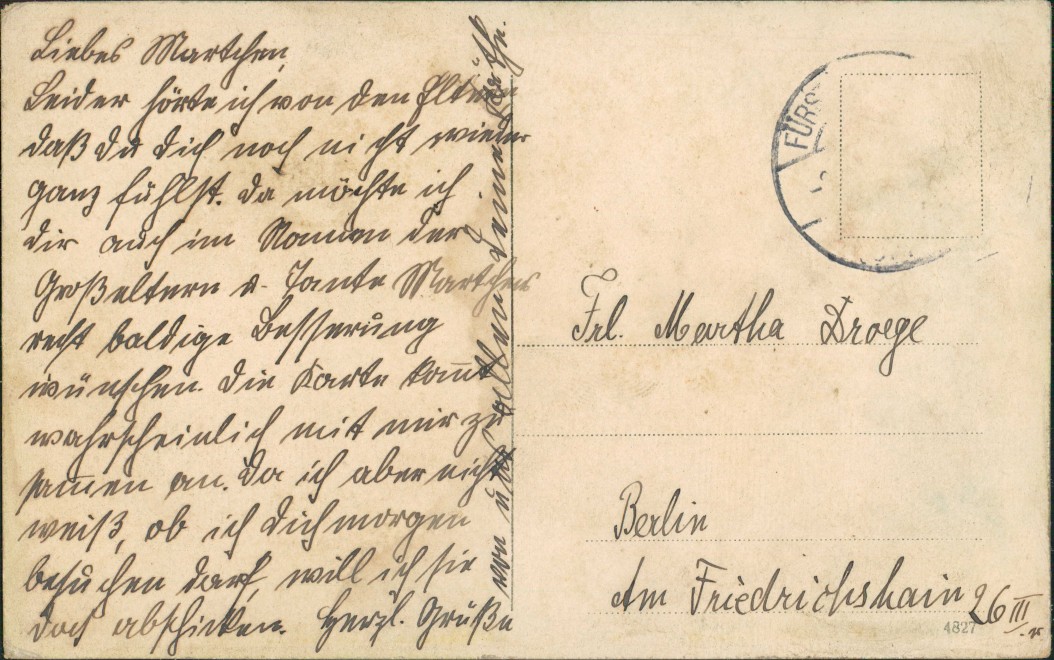 Liebes Martchen,
Leider hörte ich von den Eltern
daß du dich noch nicht wieder
ganz fühlst. Da möchte ich
dir auch im Namen der
Großeltern u. Tante Marthchen
recht baldige Besserung
wünschen. Die Karte kom̄t
wahrscheinlich mit mir zu
sam̄en an. Da ich aber nicht
weiß, ob ich dich morgen
besuchen darf, will ich sie
doch abschicken. Herzl. Grüße
von uns allen Deine Käthe.
FÜRS
Frl. Martha Droege
Berlin
Am Friedrichshain 26 III
4827